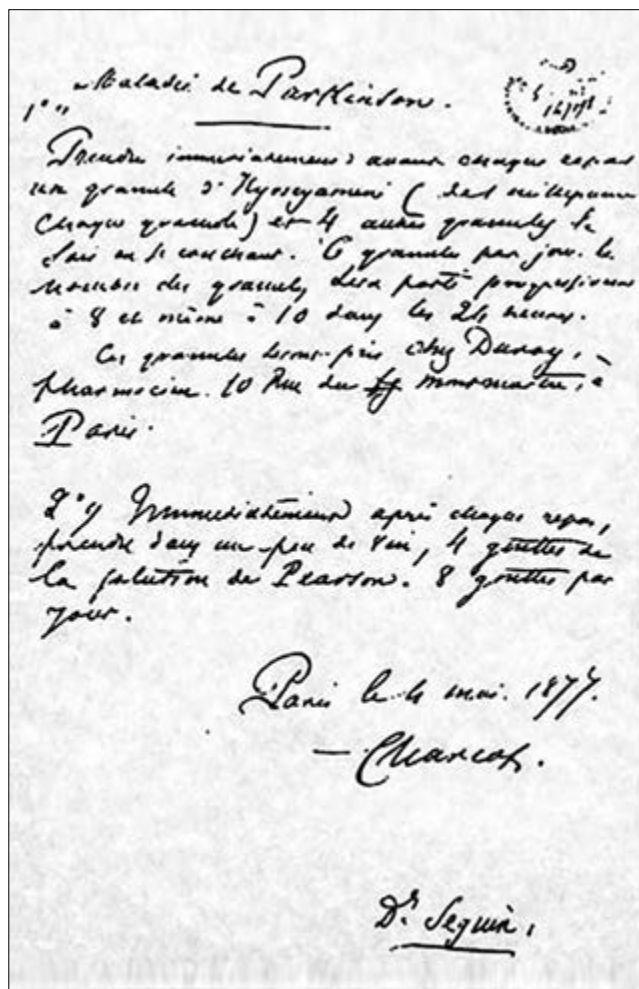 Maladie de Parkinson.
1°
Prendre immédiatement avant chaque repas
un granule d'Hyosciamine (
chaque granule) et 4 autres granules le
soir en se couchant. 6 granules par jour. le
nombre des granules sera porté progressivement
à 8 et même à 10 dans les 24 heures.
Ces granules seront pris chez Duroy,
pharmacien. 10 Rue du fg montmartre, à
Paris.
2° Immédiatement après chaque repas,
prendre dans un peu de vin, 4 gouttes de
la solution de Pearson. 8 gouttes par
jour.
Paris le 4 mai. 1877.
Charcot.
Dr. Seguin.